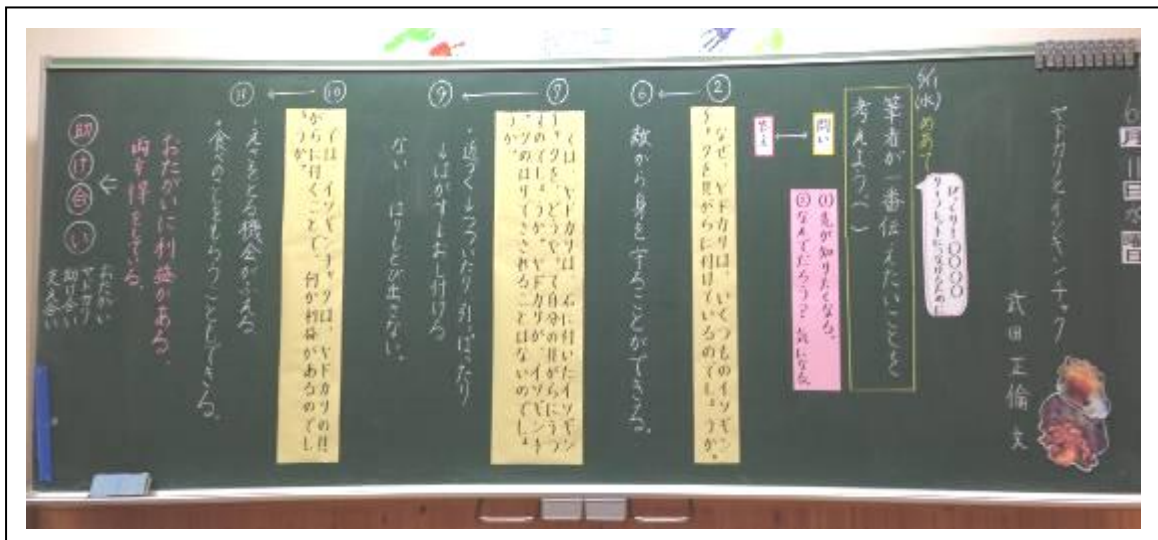 6月11日水曜日
ヤドカリとイソギンチャク
武田正倫 文
6/11(水)
めあて
びっくり!〇〇〇〇
筆者が一番伝えたいことを
考えよう。
問い
答え
①先が知りたくなる。
②なんでだろう?気になる。
②
なぜ、ヤドカリは、いくつものイソギン
チャクを貝がらに付けているのでしょうか。
⑥
敵から身を守ることができる。
⑦
では、ヤドカリは、石に付いたイソギン
チャクを、どうやって自分の貝がらにうつ
すのでしょうか。ヤドカリが、イソギンチ
ャクのはりでさされることはないのでしょ
うか。
⑨
・近づく→つついたり引っぱったり
→はがす→おし付ける
ない はりとび出さない。
⑩
では、イソギンチャクは、ヤドカリの貝
がらに付くことで、何か利益があるのでし
ょうか。
⑪
・えさをとる機会がふえる
・食べのこしをもらうこともできる。
おたがいに利益がある。
両方得をしてる。
助け合い
おたがい
ヤドカリ
助け合い
支え合い